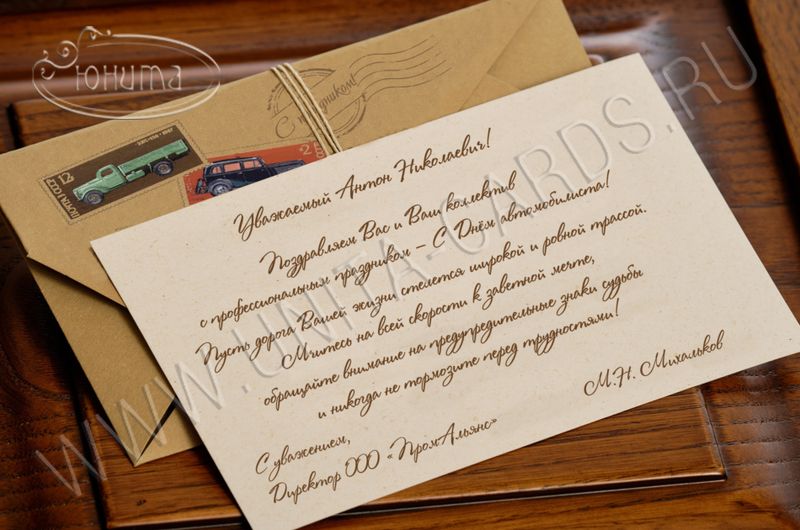 Юнита
С праздником!
ПОЧТА СССР
12
2
Уважаемый Антон Николаевич!
Поздравляем Вас и Ваш коллектив
с профессиональным праздником – С Днём автомобилиста!
Пусть дорога Вашей жизни стелется широкой и ровной трассой.
Мчитесь на всей скорости к заветной мечте,
обращайте внимание на предупредительные знаки судьбы
и никогда не тормозите перед трудностями!
М.Н. Михальков
С уважением,
Директор ООО «ПромАльянс»
WWW.UNITA-CARDS.RU